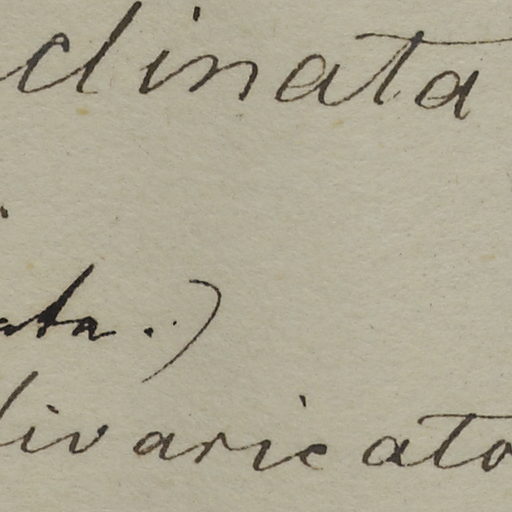 clinata
ata.)
divaricato